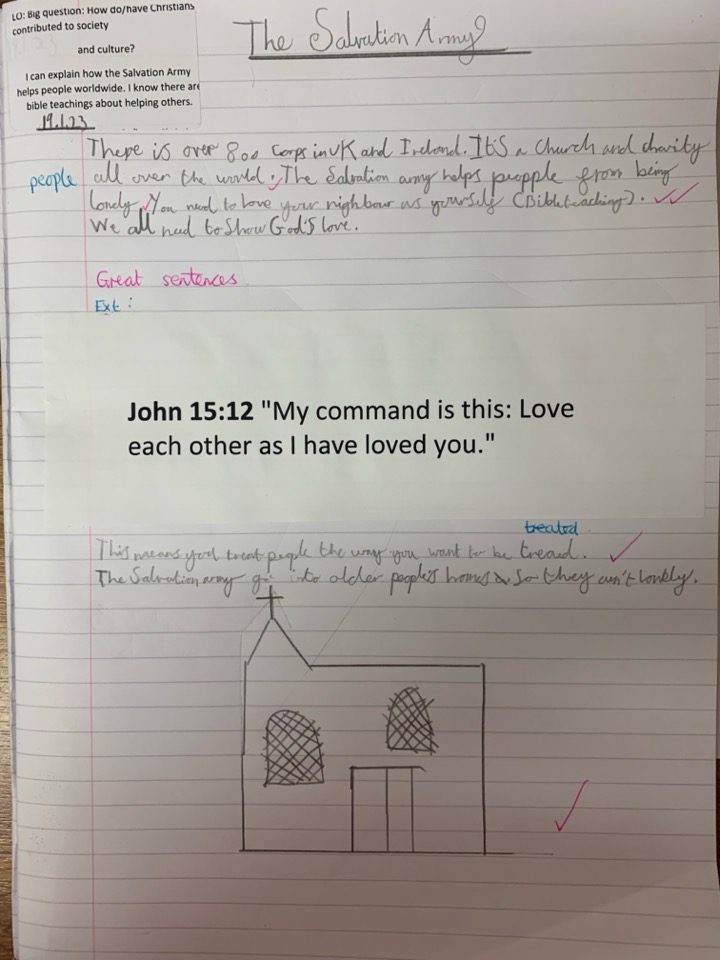 LO: Big question: How do/have Christians
contributed to society
and culture?
I can explain how the Salvation Army
helps people worldwide. I know there are
bible teachings about helping others.
19.1.23
The Salvation Army
There is over 800 corps in UK and Ireland. It's a church and charity
people
all over the world. The Salvation army helps peopple from being
lonely. You need to love your nighbour as yourself (Bible teaching).
We all need to show God's love.
Great sentences
Ext:
John 15:12 "My command is this: Love
each other as I have loved you."
treated
This means you treat people the way you want to be tread.
The Salvation army go into older people's homes so they ain't lonkly.